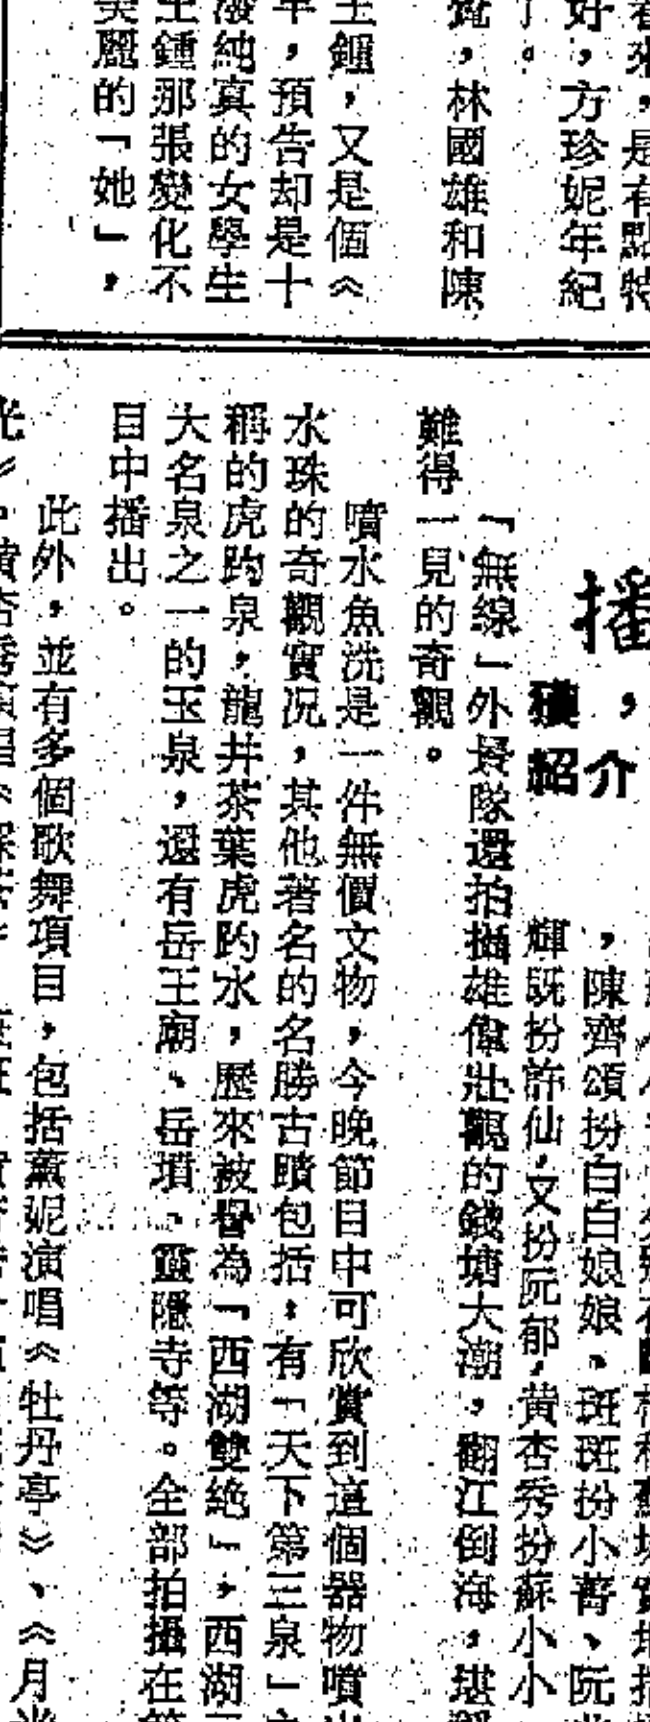 著來，是有點特
好，方珍妮年紀
了。
覺，林國雄和陳
玉鍾，又是個《
年，預告却是十
潑純真的女學生
玉鍾那張變化不
美麗的「她」，
播，介
紹
，陳齊頌扮白白娘娘、斑斑扮小菁、阮
輝既扮許仙，又扮阮郁，黃杏秀扮蘇小小
「無線」外景隊還拍攝雄偉壯觀的錢塘大潮，翻江倒海，堪稱
難得一見的奇觀。
噴水魚洗是一件無價文物，今晚節目中可欣賞到這個器物噴出
水珠的奇觀實況，其他著名的名勝古蹟包括：有「天下第三泉」之
稱的虎趵泉，龍井茶葉虎趵水，歷來被譽為「西湖雙絶」，西湖三
大名泉之一的玉泉，還有岳王廟、岳墳、靈隱寺等。全部拍攝在節
目中播出。
此外，並有多個歌舞項目，包括薰妮演唱《牡丹亭》、《月光
光》，黃杏秀演唱《